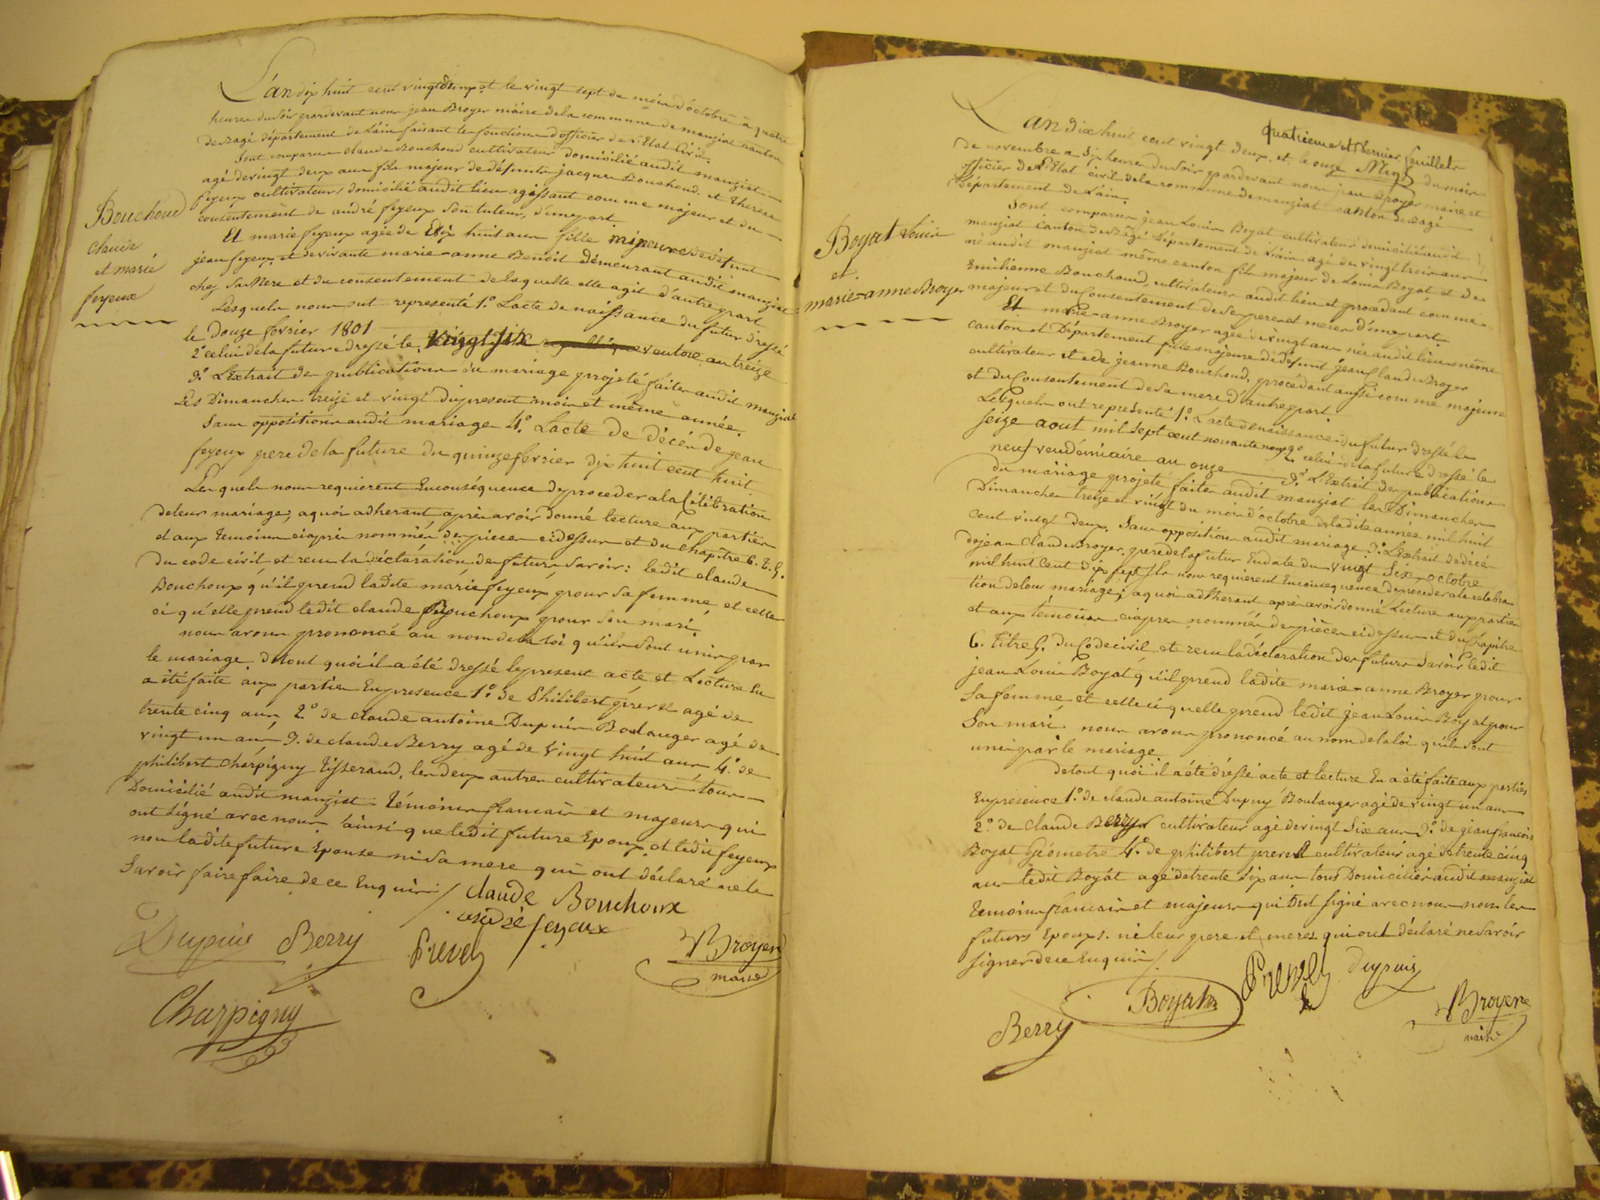 L'an dix huit cent vingt deux et le vingt sept du mois d'octobre à quatre
heures du soir pardevant nous jean Broyer maire de la commune de manziat canton
de bagé département de L'ain faisant les fonctions d'officier de l'Etat Civil.
Sont comparus claude Bouchoud cultivateur domicilié audit manziat
agé de vingt deux ans fils majeur de défunts jacques Bouchoud et therese
feyeux cultivateurs domicilié audit lieu agissant comme majeur et du
consentement de andré feyeux son tuteur, d'une part
Et marie feyeux agée de dix huit ans fille mineure de défunt
jean feyeux et de vivante marie-anne Benoit demeurant audit manziat
chez sa Mere et du consentement de laquelle elle agit d'autre part
Lesquels nous ont representé 1.° L'acte de naissance du futur dressé
le douze fevrier 1801
2.° celui de la future dressé le vingt six ventose an treize
3.° L'Extrait des publications du mariage projeté faites audit manziat
Les Dimanches treize et vingt du present mois et même année.
Sans opposition audit mariage 4.° L'acte de décès de jean
feyeux pere de la future du quinze fevrier dix huit cent huit
Lesquels nous requierent Enconséquence de proceder a la Célébration
de leur mariage; a quoi adherant après avoir donné lecture aux parties
et aux temoins ciaprès nommés des pieces cidessus et du chapitre 6. T. 5.
du code civil et recu la déclaration des futurs savoir: ledit claude
Bouchoux qu'il prend ladite marie feyeux pour sa femme, et celle
ci qu'elle prend ledit claude Bouchoux pour son mari.
nous avons prononcé au nom de la loi qu'ils sont unis par
le mariage. de tout quoi il a été dressé le present acte et Lecture En
a été faite aux parties En presence 1.° de Philibert prevel agé de
trente cinq ans 2.° de claude antoine Dupuis Boulanger agé de
vingt un ans 3.° de claude Berry agé de vingt huit ans 4.° de
philibert Charpigny tisserand, les deux autres cultivateurs tous
Domicilié audit manziat Témoins francais et majeurs qui
ont signé avec nous ainsi que ledit future Epoux et ledit feyeux
non ladite future Epouse ni sa mere qui ont déclaré ne le
Savoir faire faire de ce Enquis
claude Bouchoux
andré feyeux
Dupuis Berry Prevel
Broyer
maire
Charpigny
Bouchoud
claude
et marie
feyeux
quatrieme et dernier feuillet
L'an dix huit cent vingt deux et le onze du mois
de novembre a six heures du soir pardevant nous jean Broyer maire et
officier de l'Etat civil de la commune de manziat canton de bagé
Département de L'ain.
Sont comparus jean Louis Boyat cultivateur domicilié audit
manziat canton de bagé Département de L'ain agé de vingt trois ans
né audit manziat même canton fils majeur de Louis Boyat et de
Emilienne Bouchoud, cultivateurs audit lieu et procédant comme
majeur et du Consentement de ses pere et mere d'une part
Et marie-anne Broyer agée de vingt ans née audit lieu même
canton et Département fille majeure de défunt jean Claude Broyer
cultivateur et de jeanne Bouchoud, procedant aussi comme majeure
et du Consentement de sa mere d'autre part.
Lesquels ont representé 1.° L'acte de naissance du futur dressé le
seize aout mil sept cent nonante neuf 2.° celui de la future dressé le
neuf vendémiaire an onze 3.° L'Extrait des publications
du mariage projeté faites audit manziat les Dimanches
Dimanches treize et vingt du mois d'octobre de ladite année mil huit
cent vingt deux. Sans opposition audit mariage 4.° L'Extrait de décès
de jean claude Broyer pere de la futur En date du vingt six octobre
mil huit cent dix sept Ils nous requierent Enconsequence de proceder a la celebra
tion de leur mariage; a quoi adherant après avoir donné Lecture aux parties
et aux temoins ciaprès nommés des pièces cidessus et du chapitre
6. titre 5. du Code civil et recu la déclaration des futurs savoir ledit
jean Louis Boyat qu'il prend ladite marie-anne Broyer pour
sa femme et celle ci quelle prend ledit jean Louis Boyat pour
son mari nous avons prononcé au nom de la loi qu'ils sont
unis par le mariage
de tout quoi il a été dressé acte et lecture En a été faite aux parties
En presence 1.° de claude antoine Dupuy Boulanger agé de vingt un ans
2.° de Claude Berry cultivateur agé de vingt six ans 3.° de jean francois
Boyat Géometre 4.° de philibert prevel cultivateur agé de trente cinq
ans ledit Boyat agé de trente six ans tous Domiciliés audit manziat
temoins francais et majeurs qui ont signé avec nous non les
futurs Epoux. ni leur pere et meres qui ont déclaré ne savoir
signer de ce Enquis
Prevel Dupuis
Boyat
Berry
Broyer
maire
Boyat Louis
et
marie-anne Broyer